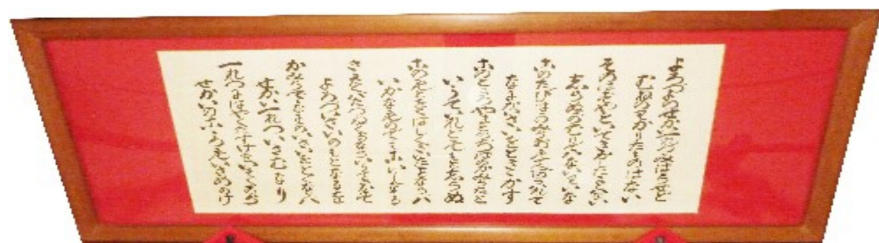 よろづよのせかい一れつみはらせど
むねのわかりたものはない
そのはずやといてきかしたことハない
しらぬがむりでハないわいな
このたびはかみがおもてへあらハれて
なにかいさいをとききかす
このところやまとのぢバのかみがたと
いうていれどももとしらぬ
このもとをくはしくきいたことならバ
いかなものでもこいしなる
きゝたくバたづねくるならいうてきかそ
よろづいさいのもとなるを
かみがでてなにかいさいをとくならバ
せかい一れついさむなり
一れつにはやくたすけをいそぐから
せかいのこゝろもいさめかけ